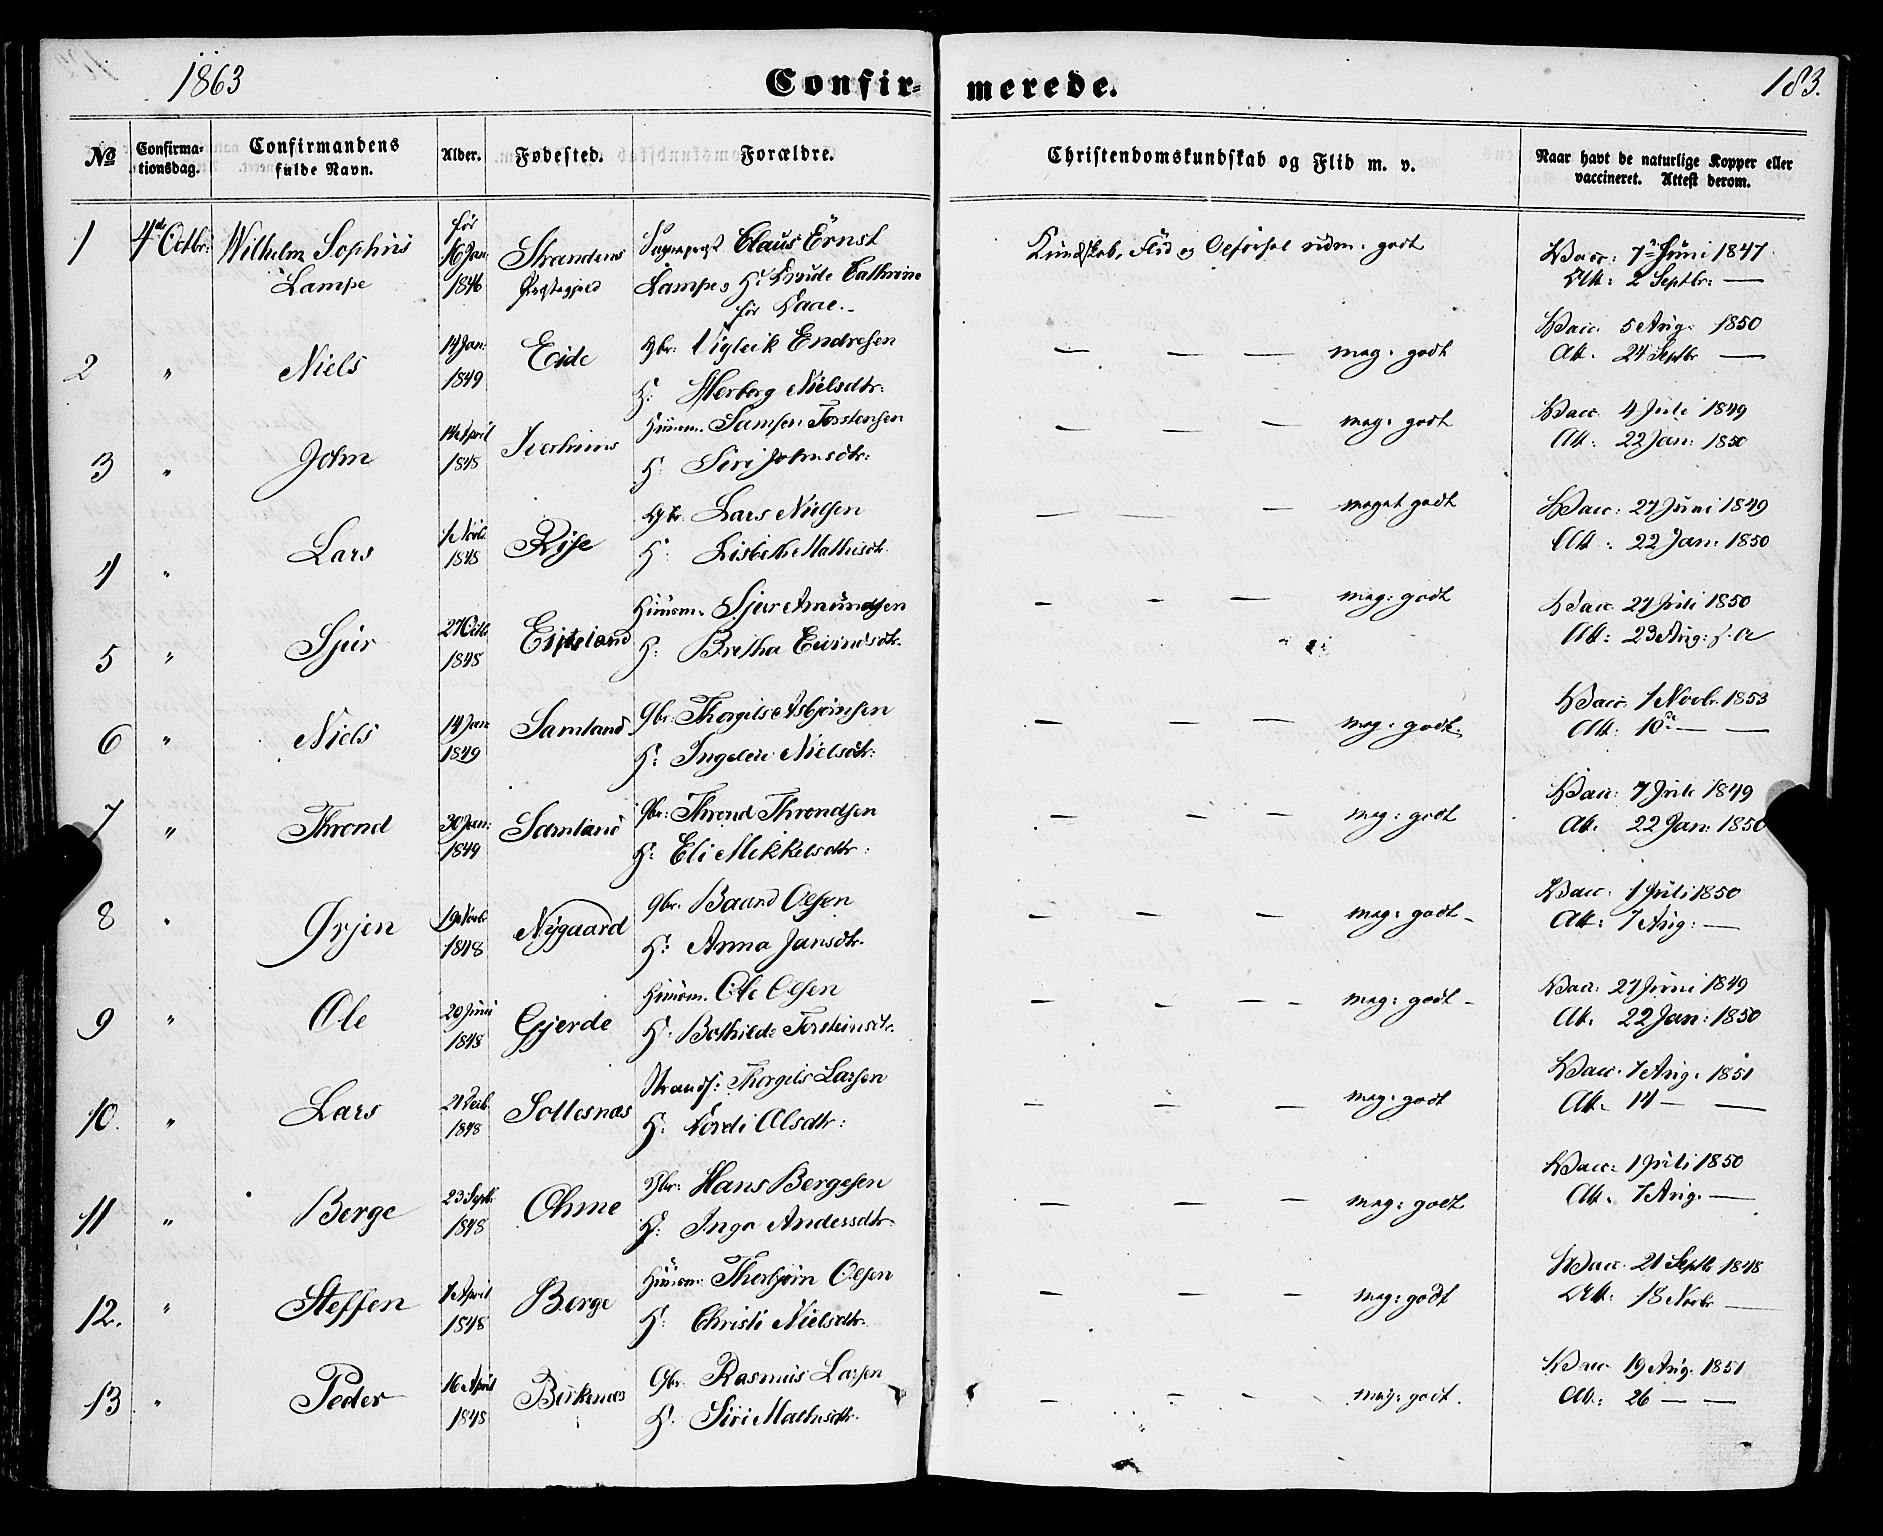 1863
Confir-
merede.
183.
No
Confirma-
tionsdag.
Confirmandens
fulde Navn.
Alder.
Fødested.
Forældre.
Christendomskundskab og Flid m. v.
Naar havt de naturlige Kopper eller
vaccineret. Attest derom.
1 4de Octbr: Wilhelm Sophus
Lampe
før
16 Jan:
1846
Strandens
Præstegjeld
Claus Ernst
Lampe, H: Cathrine
Kundskab, Flid og Opførsel udm: godt
Vacc: 7de Juni 1847
Att: 2 Septbr: —
2 " Niels
14 Jan:
1849
Eide
Gbr: Vigleik Endresen
H: Herborg Nielsdtr:
— — — meg: godt
Vacc. 5 Aug: 1850
Att. 24 Septbr —
3 " John
14 April
1848
Huusm. Samson Torstensen
H: Siri Johnsdtr:
— — — meg: godt
Vacc. 4 Juli 1849
Att: 22 Jan: 1850
4 " Lars
1 Novb:
1848
Rise
Gbr. Lars Nielsen
H: Lisbeth Mathisdt.
— — — meget godt
Vacc: 27 Juni 1849
Att: 22 Jan: 1850
5 " Sjur
27 Octb:
1848
Huusm. Sjur Amundsen
H: Bretha
— — — meg: godt
Vacc 27 Juli 1850
Att: 23 Aug: s. A
6 " Niels
14 Jan
1849
Samland
Gbr. Thorgils Asbjørnsen
H: Nielsdtr:
— — — meg: godt.
Vacc. 1 Novbr. 1853
Att: 10de — —
7 " Thrond
30 Jan:
1849
Samland
Gbr: Thrond Throndsen
H: Eli Mikkelsdtr:
— — — meg: godt
Vacc: 7 Juli 1849
Att. 22 Jan: 1850
8 " Ørjen
19 Novbr
1848
Nygaard
Gbr. Baard Olsen
H: Anna Jansdtr.
— — — meg: godt –
Vacc. 1 Juli 1850
Att: 7 Aug: —
9 " Ole
20 Juni
1848
Gjerde
Huusm. Ole Olsen
H: Bothilde Torsteinsdtr.
— — — meg: godt –
Vacc: 27 Juni 1849
Att. 22 Jan: 1850
10. " Lars
1848
Strands: Thorgils Larsen
H: Olsdtr:
— — — meg: godt
Vacc. 7 Aug. 1851
Att. 14 — —
11 " Berge
23 Septb:
1848
Ohme
Gbr: Hans Bergesen
H: Inga Andersdtr
— — — meg: godt
Vacc: 1 Juli 1850
Att. 7 Aug. —
12. " Steffen
1 April
1848
Berge
Huusm: Thorbjørn Olsen
H: Christi Nielsdtr.
— — — meg: godt
Vacc. 21 Septb 1848
Att: 18 Novbr —
13 " Peder
16 April
1848
Birkenæs
Gbr. Rasmus Larsen
H: Siri Mathisdtr.
— — — meg: godt.
Vacc 19 Aug. 1851
Att: 26 — —